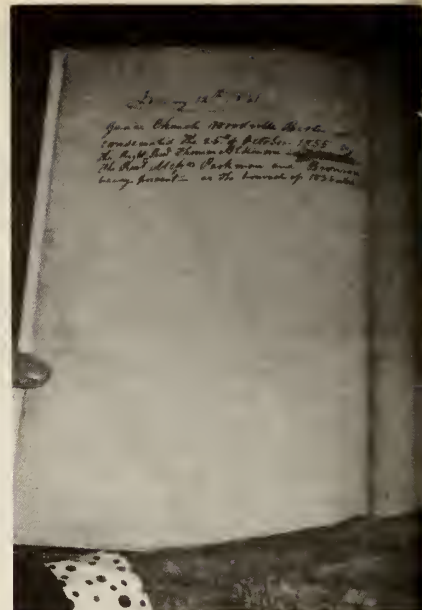 12th
Grace Church Woodville Bertie
Consecrated the 25th of October 1855 by
the Right Revd Thomas Atkinson
the Revd Parkman and Bronson
being present as the of 1855